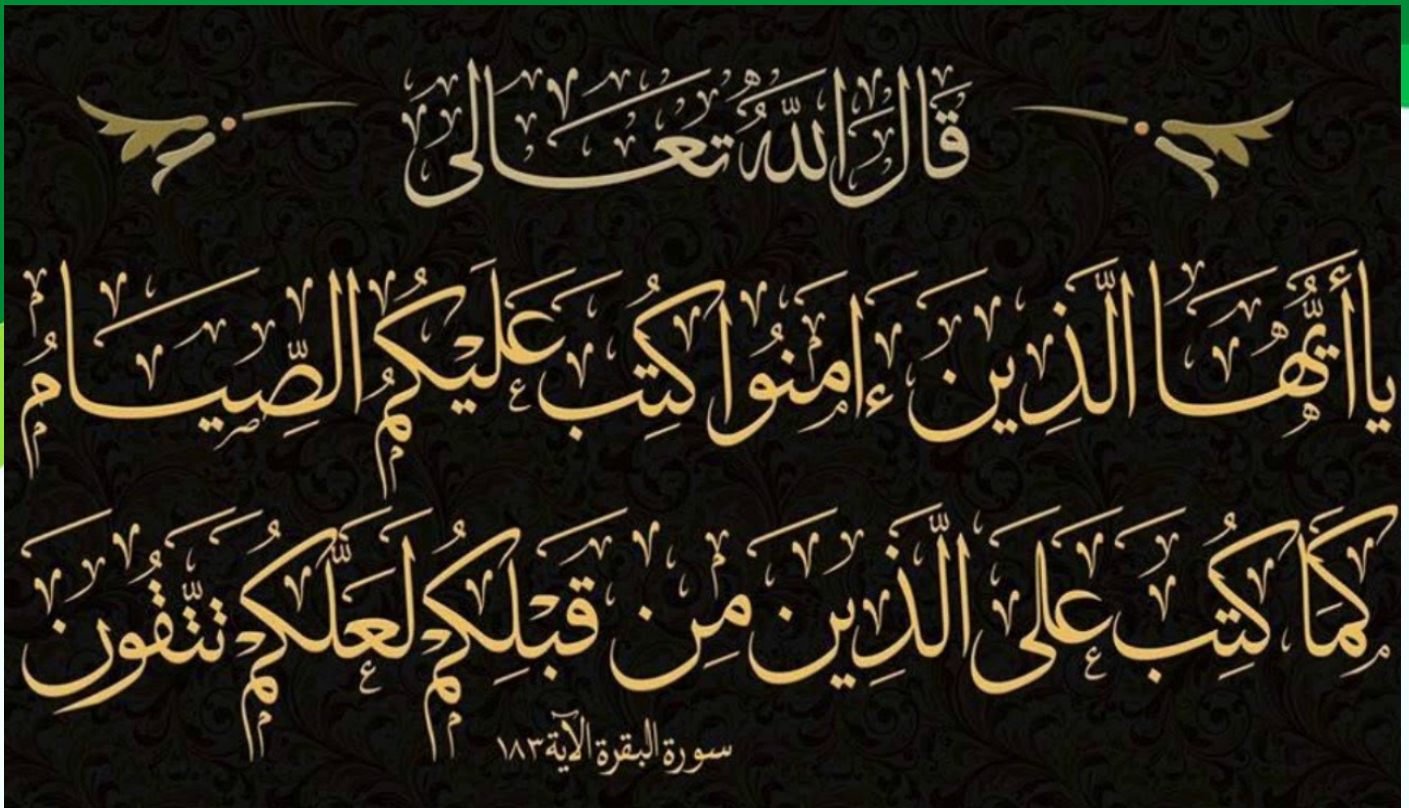 قَالَ اللَّهُ تَعَالَى
يَاأَيُّهَا الَّذِينَ ءَامَنُوا كُتِبَ عَلَيْكُمُ الصِّيَامُ
كَمَا كُتِبَ عَلَى الَّذِينَ مِن قَبْلِكُمْ لَعَلَّكُمْ تَتَّقُونَ
سورة البقرة الآية ١٨٣